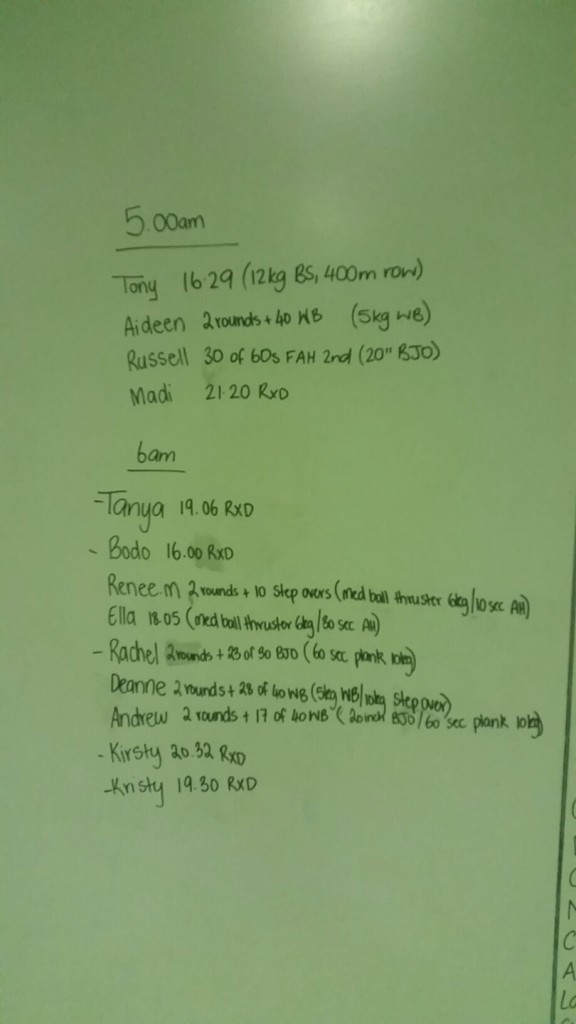 5.00am
Tony 16.29 (12kg BS, 400m row)
Aideen 2 rounds + 40 WB (5kg WB)
Russell 30 of 60s FAH 2nd (20" BJO)
Madi 21.20 RXD
6am
- Tanya 19.06 RXD
- Bodo 16.00 RXD
Renee.m 2 rounds + 10 step overs (med ball thruster 6kg/10 sec AH)
Ella 18.05 (med ball thruster 6kg/30 sec AH)
- Rachel 2 rounds + 23 of 30 BJO (60 sec plank 10kg)
Deanne 2 rounds + 28 of 40 WB (5kg WB/10kg step over)
Andrew 2 rounds + 17 of 40 WB (20 inch BJO/60 sec plank 10kg)
- Kirsty 20.32 RXD
- Kristy 19.30 RXD
C
A